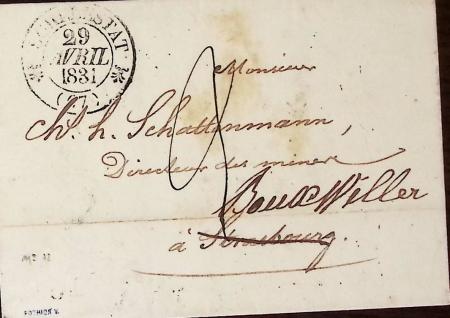 29
AVRIL
1831
(67)
Monsieur
Ch. h. Schattenmann,
Directeur des mines
BouxWiller
à Strasbourg.